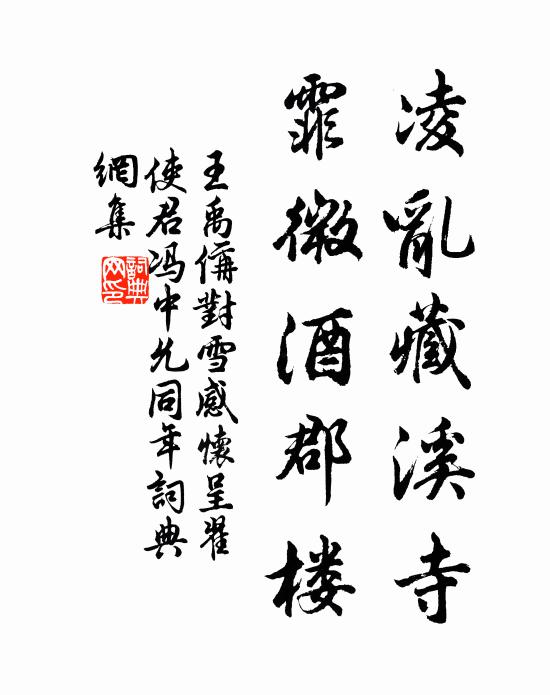 凌亂藏溪寺
霏微酒郡楼
王禹偁對雪感懷呈翟
使君冯中允同年詞典
網集
詞典
网印